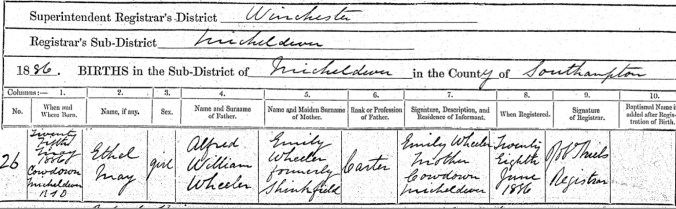 Superintendent Registrar's District Winchester
Registrar's Sub-District Micheldever
1886. BIRTHS in the Sub-District of Micheldever in the County of Southampton
Columns:— 1. 2. 3. 4. 5. 6. 7. 8. 9. 10.
No. When and Where Born. Name, if any. Sex. Name and Surname of Father. Name and Maiden Surname of Mother. Rank or Profession of Father. Signature, Description, and Residence of Informant. When Registered. Signature of Registrar. Baptismal Name if added after Registration of Birth.
26 Twenty Fifth May 1886 Cowdown Micheldever R S D Ethel May girl Alfred William Wheeler Emily Wheeler formerly Shinkfield Carter Emily Wheeler Mother Cowdown Micheldever Twenty Eighth June 1886 Registrar